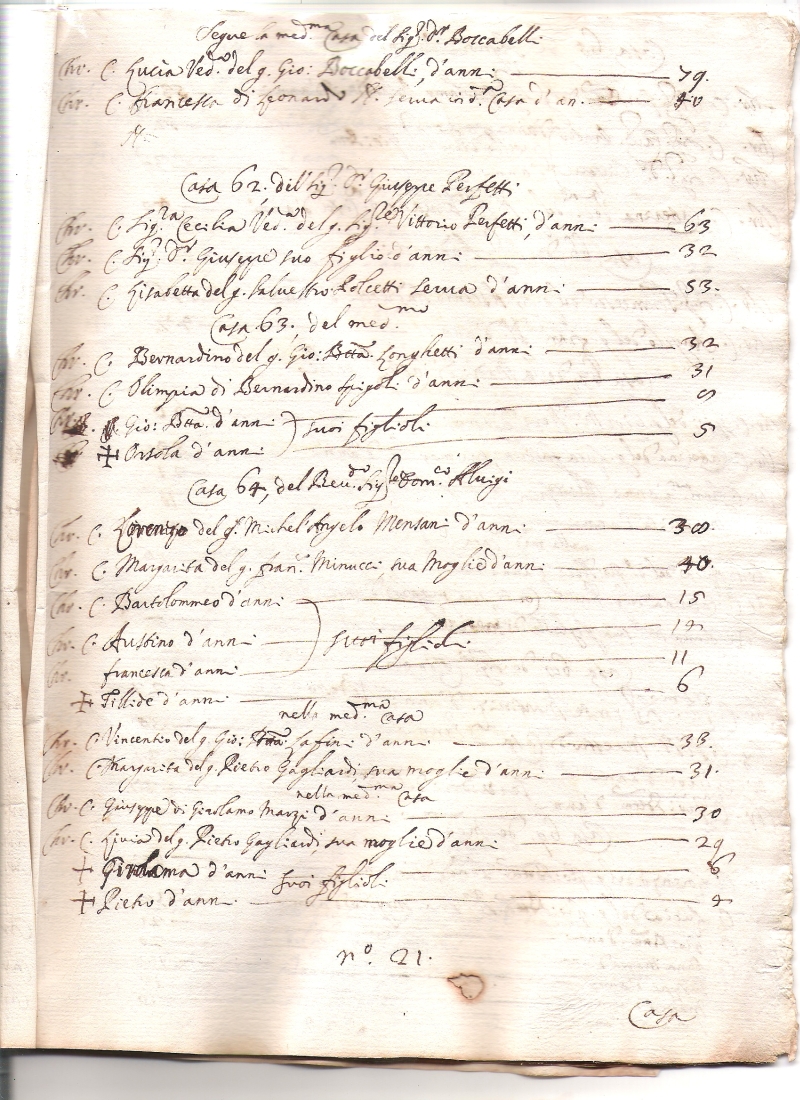 Segue la med.ma Casa del Sig.r D.r Boccabelli
Chr. C. Lucia Ved.a del q. Gio: Boccabelli, d'anni 79.
Chr. C. Francesca di Leonardo serva in d.a Casa d'an. 40
Casa 62. del Sig.r D.r Giuseppe Perfetti
Chr. C. Sig.ra Cecilia Ved.a del q. Sig.re Vittorio Perfetti, d'anni 63
Chr. C. Sig.r D.r Giuseppe suo figlio d'anni 32
Chr. C. Lisabetta del q. Salvestro Polcetti serva d'anni 53.
Casa 63. del med.mo
Chr. C. Bernardino del q. Gio: Btta. Longhetti d'anni 32
Chr. C. Olimpia di Bernardino Spigoli d'anni 31
Gio: Btta. d'anni suoi figlioli
✝ Orsola d'anni 5
Casa 64, del Rev.do Sig.re Dom.co Aluigi
Chr. C. Lorenzo del q. Michel'Angelo Mensani d'anni 38.
Chr. C. Margarita del q. Fran.o Minucci, sua Moglie d'anni 40.
Chr. C. Bartolommeo d'anni 15
Chr. C. Austino d'anni suoi figlioli
Chr. francesca d'anni 11
✝ Fillide d'anni 6
nella med.ma Casa
Chr. C. Vincentio del q. Gio: Btta. Safini d'anni 33.
Chr. C. Margarita del q. Pietro Gagliardi, sua moglie d'anni 31.
nella med.ma Casa
Chr. C. Giuseppe di Girolamo Marzi d'anni 30
Chr. C. Livia del q. Pietro Gagliardi, sua moglie d'anni 29
✝ Girolama d'anni suoi figlioli 6
✝ Pietro d'anni 4
n.o 21.
Casa